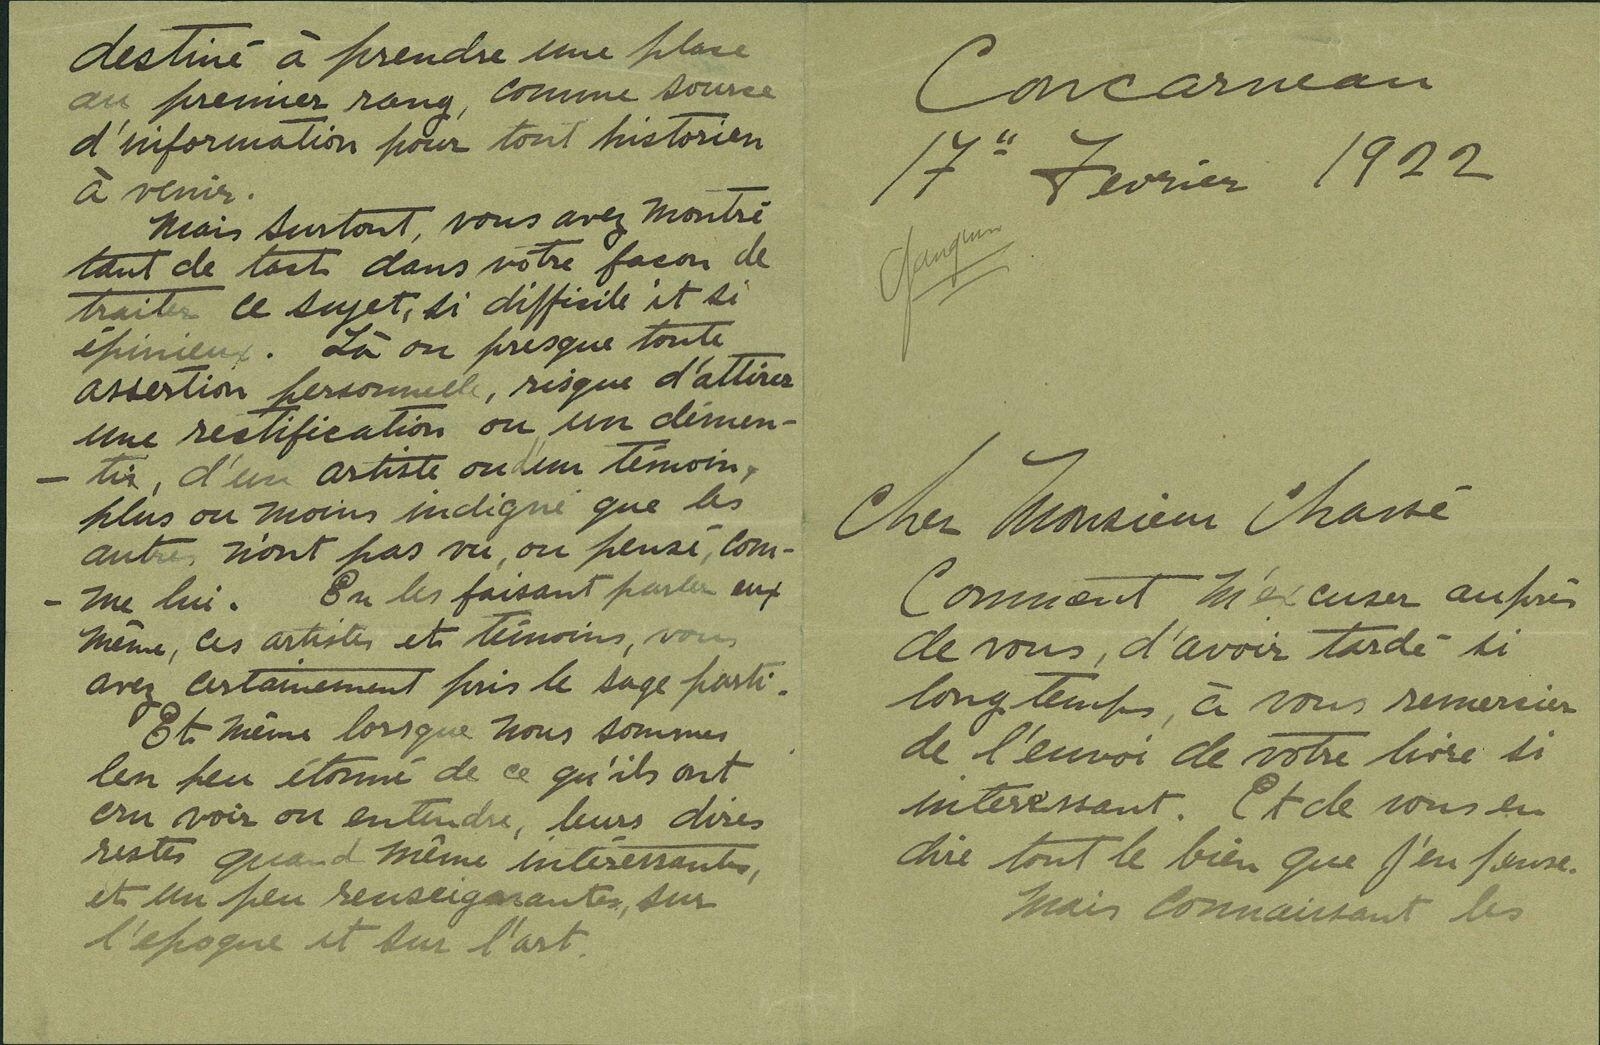 Concarneau
17" Fevrier 1922
Cher Monsieur Chassé
Comment m'excuser auprès
de vous, d'avoir tardé si
longtemps, à vous remercier
de l'envoi de votre livre si
interessant. Et de vous en
dire tout le bien que j'en pense.
Mais connaissant les
destiné à prendre une place
au premier rang, comme source
d'information pour tout historien
à venir.
Mais surtout, vous avez montré
tant de tact dans votre facon de
traiter ce sujet, si difficile et si
épinieux. Là ou presque toute
assertion personnelle, risque d'attirer
une rectification ou un démen-
- tir, d'un artiste ou d'un témoin,
plus ou moins indigné que les
autres n'ont pas vu, ou pensé, com-
- me lui. En les faisant parler eux
même, ces artistes et témoins, vous
avez certainement pris le sage parti.
Et même lorsque nous sommes
un peu étonné de ce qu'ils ont
cru voir ou entendre, leurs dires
restes quand même intéressantes,
et un peu renseignantes, sur
l'epoque et sur l'art.